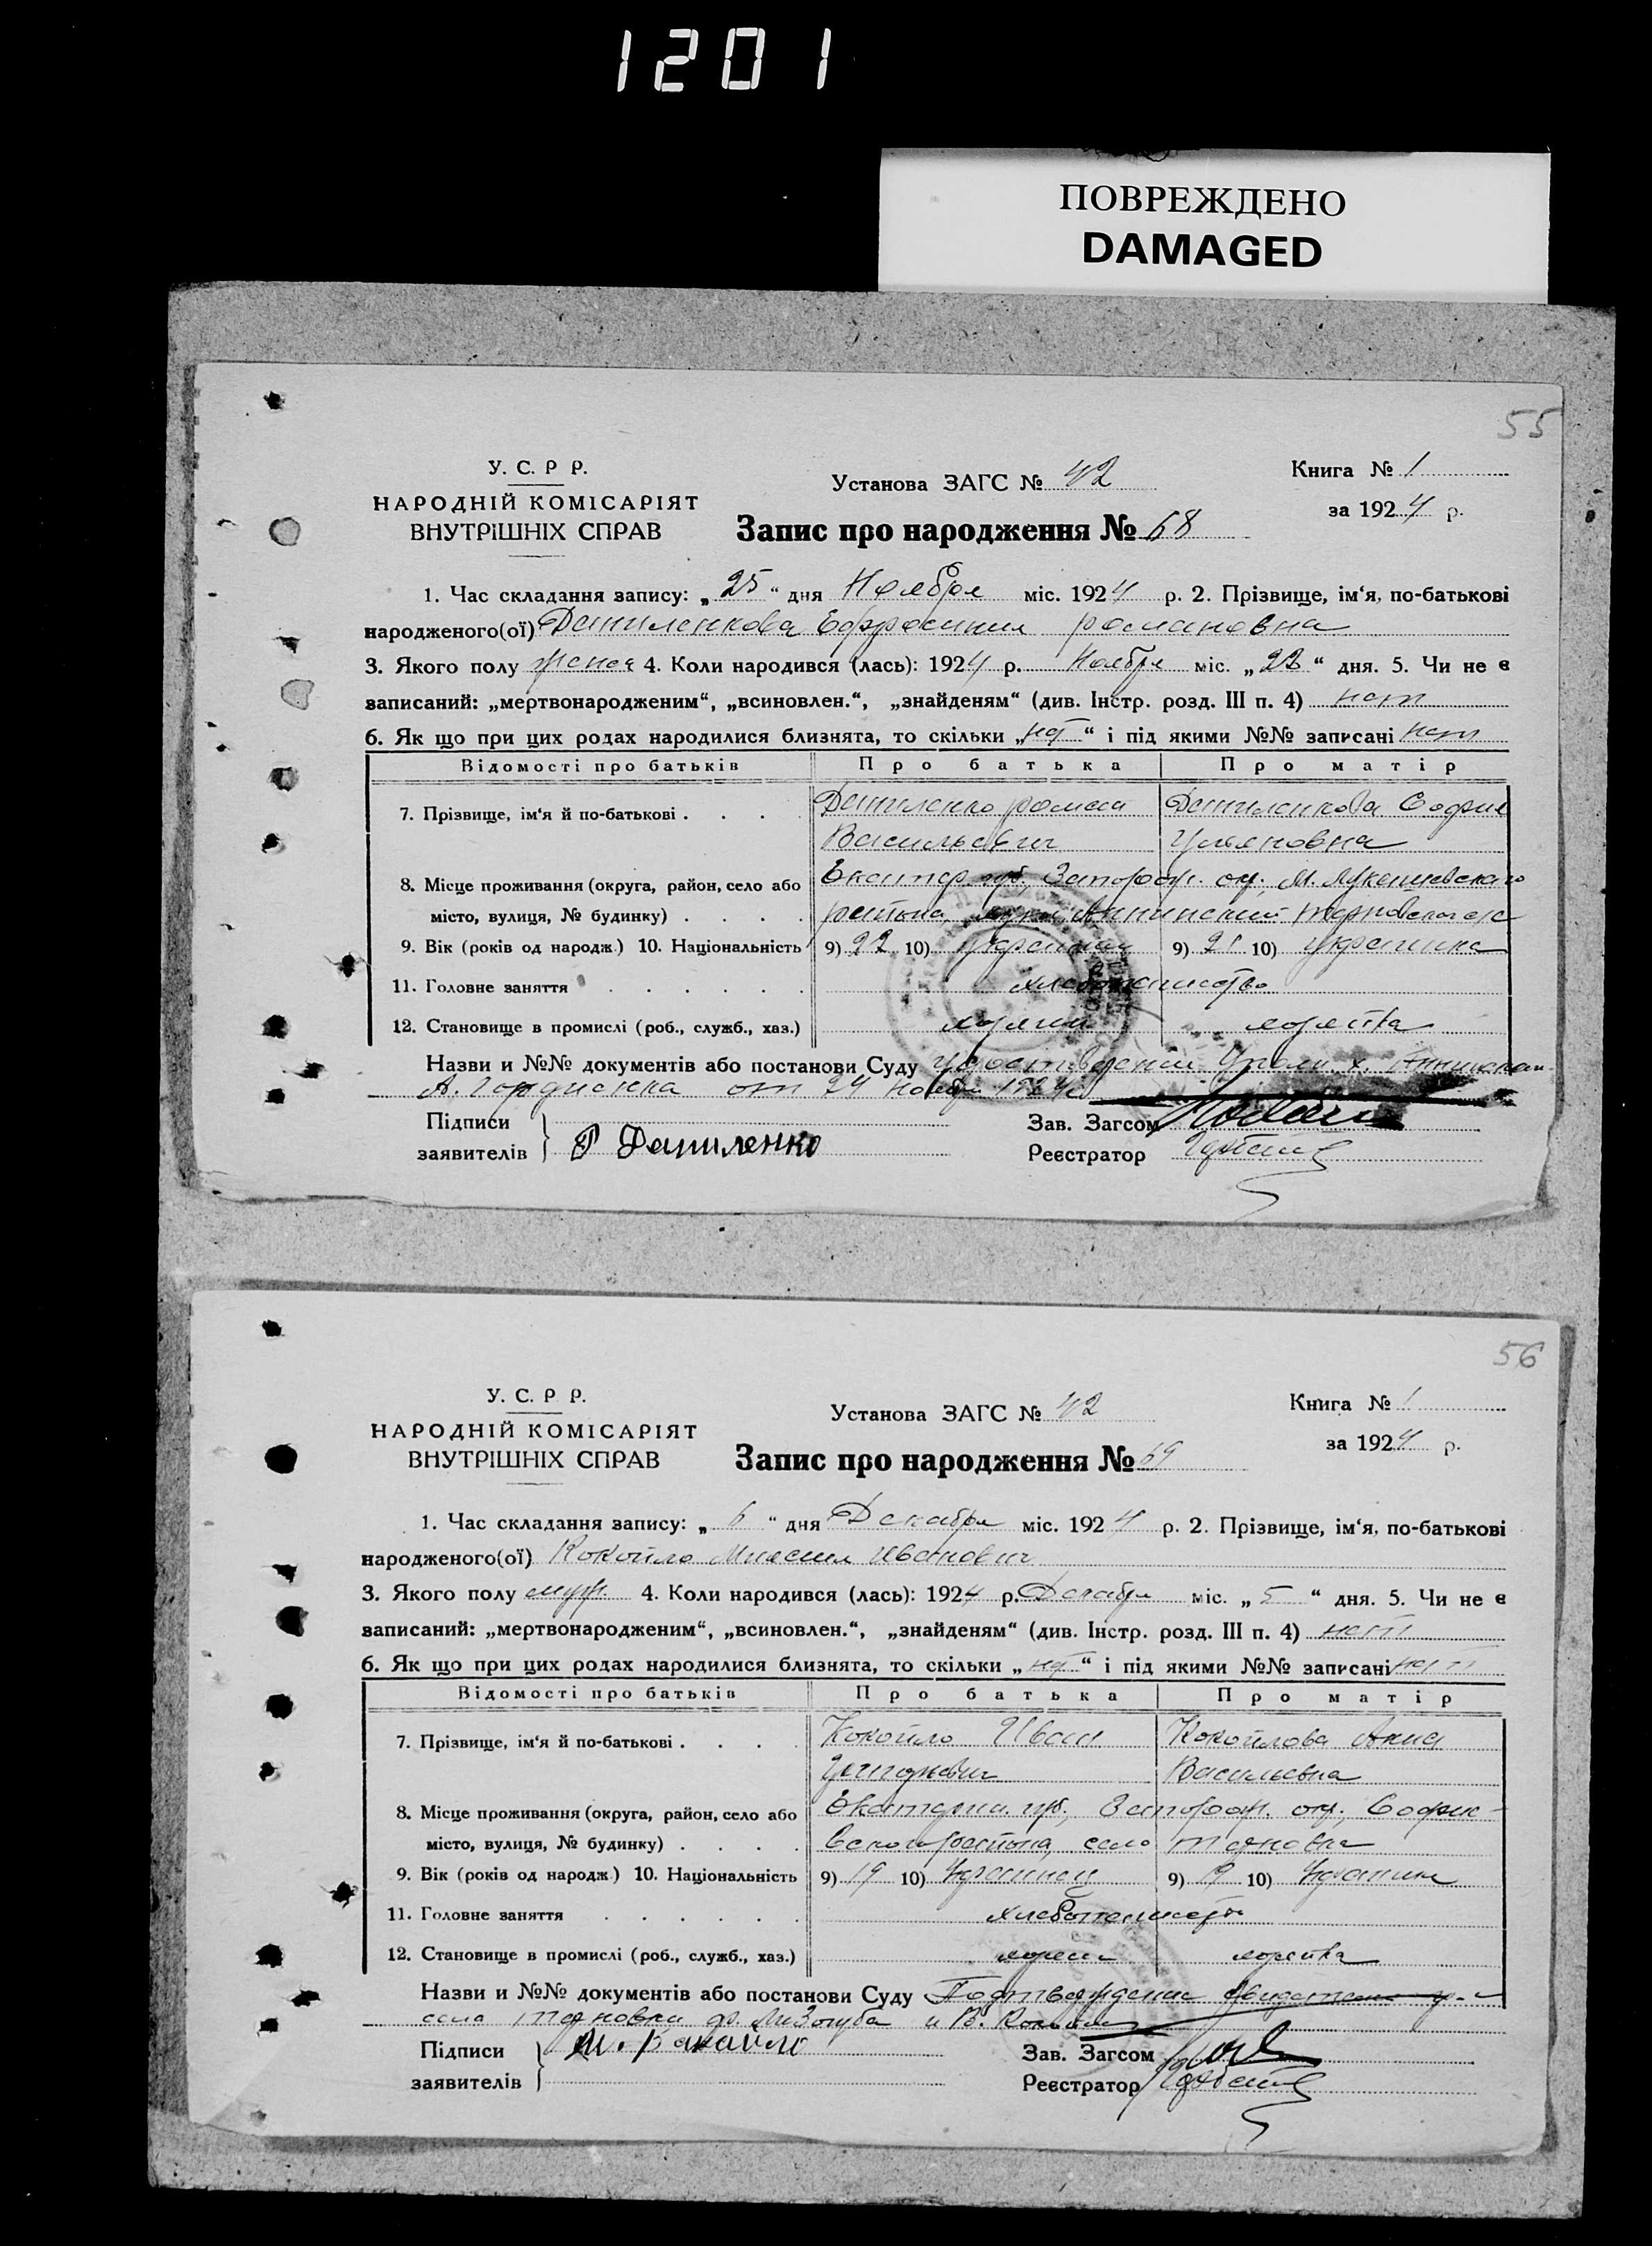 1201
ПОВРЕЖДЕНО
DAMAGED
55
У. С. Р Р.
НАРОДНІЙ КОМІСАРІЯТ
ВНУТРІШНІХ СПРАВ
Установа ЗАГС № 42
Книга № 1
за 1924 р.
Запис про народження № 68
1. Час складання запису: „25“ дня Ноября міс. 1924 р. 2. Прізвище, ім‘я, по-батькові
народженого(ої) Даниленкова Ефросиния романовна
3. Якого полу женск 4. Коли народився (лась): 1924 р. Ноября міс. „23“ дня. 5. Чи не є
записаний: „мертвонародженим“, „всиновлен.“, „знайденям“ (див. Інстр. розд. III п. 4) нет
6. Як що при цих родах народилися близнята, то скільки „нет“ і під якими №№ записані нет
Відомості про батьків Про батька Про матір
7. Прізвище, ім‘я й по-батькові . . . . Даниленко роман Даниленкова София
Васильевич Ульяновна
8. Місце проживання (округа, район, село або Екатер. губ., Запорож. окр.
місто, вулиця, № будинку) . . . . района,
9. Вік (років од народж.) 10. Національність 9) 22 10) украинец 9) 21 10) украинка
11. Головне заняття . . . . . . хлебопашество
12. Становище в промислі (роб., служб., хаз.)
Назви и №№ документів або постанови Суду
от 24 ноября 1924 г.
Підписи
заявителів Р Даниленко
Зав. Загсом
Реєстратор
56
У. С. Р Р.
НАРОДНІЙ КОМІСАРІЯТ
ВНУТРІШНІХ СПРАВ
Установа ЗАГС № 42
Книга № 1
за 1924 р.
Запис про народження № 69
1. Час складання запису: „6“ дня Декабря міс. 1924 р. 2. Прізвище, ім‘я, по-батькові
народженого(ої) Кокойло Михаил Иванович
3. Якого полу муж. 4. Коли народився (лась): 1924 р. Декабря міс. „5“ дня. 5. Чи не є
записаний: „мертвонародженим“, „всиновлен.“, „знайденям“ (див. Інстр. розд. III п. 4) нет
6. Як що при цих родах народилися близнята, то скільки „нет“ і під якими №№ записані нет
Відомості про батьків Про батька Про матір
7. Прізвище, ім‘я й по-батькові . . . . Кокойло Иван Кокойлова Анна
Григорьевич Васильевна
8. Місце проживання (округа, район, село або Екатерин. губ., Запорож. окр., Софие-
місто, вулиця, № будинку) . . . . вского района, село Терновка
9. Вік (років од народж.) 10. Національність 9) 19 10) Украинец 9) 19 10) Украинк
11. Головне заняття . . . . . . хлебопашество
12. Становище в промислі (роб., служб., хаз.)
Назви и №№ документів або постанови Суду Подтверждение
села Терновки
Підписи
заявителів
Зав. Загсом
Реєстратор